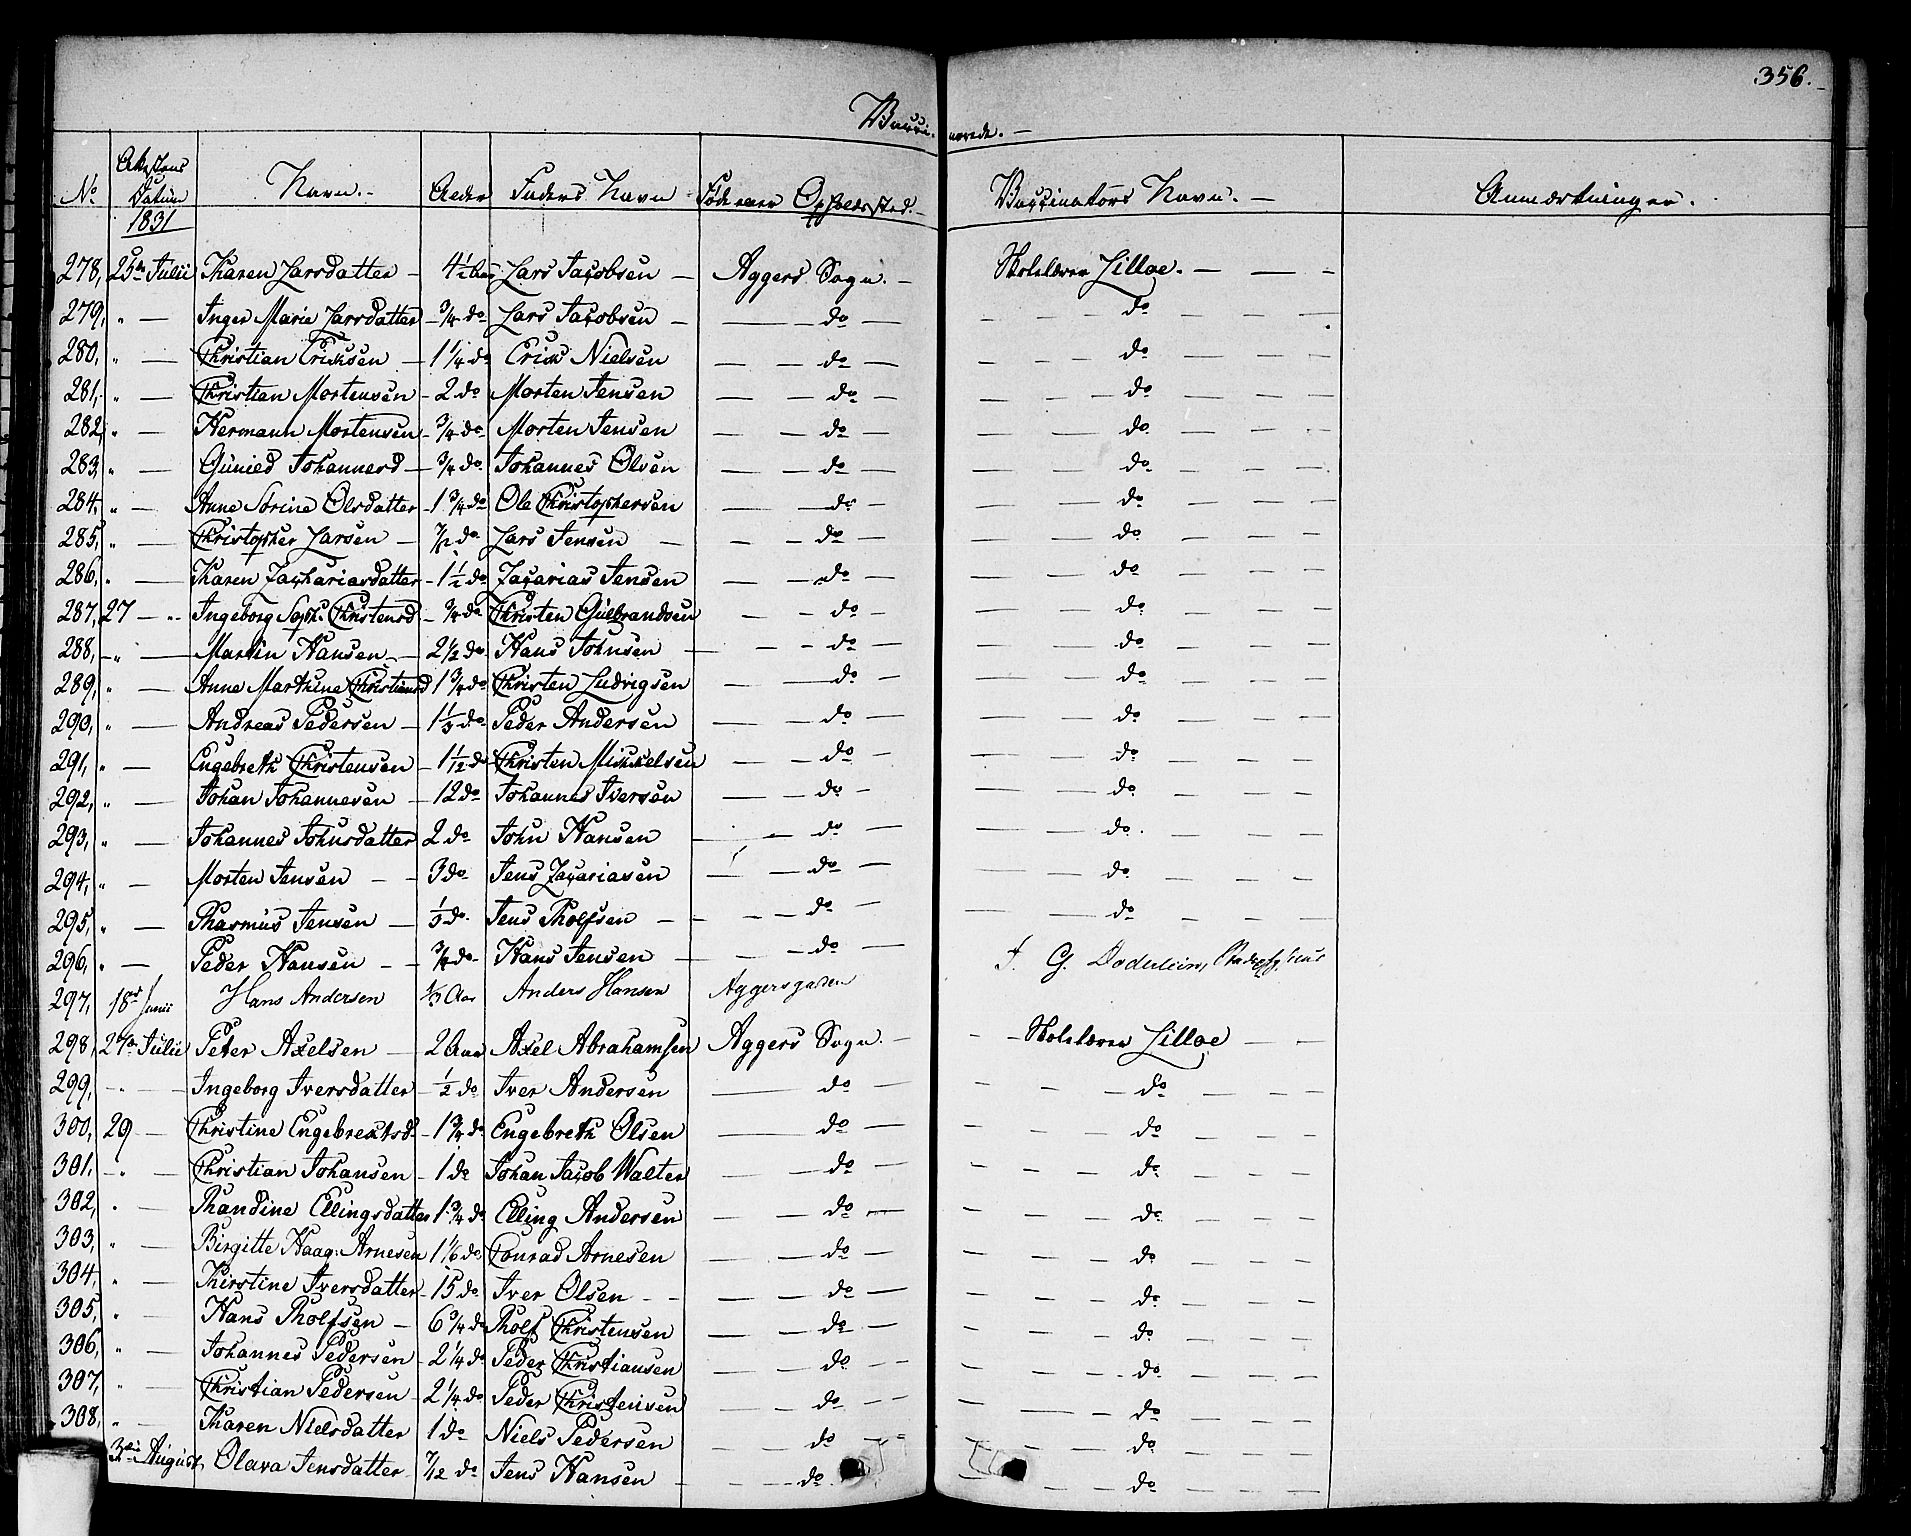 356.
Vacci- nerede.
No Attestens Datum 1831 Navn. Alder Faders Navn Føde eller Opholdssted. Vaccinators Navn. Anmærkninger.
278, 25de Julii Karen Larsdatter - 4½ Aar Lars Jacobsen - Aggers Sogn. - Skolelærer Lilloe. - - -
279, " - Inger Marie Larsdatter - ¾ do Lars Jacobsen - - do - - do - -
280, " - Christian Ericksen - 1¼ do Erick Nielsen - do - - do - -
281, " - Christian Mortensen - 2 do Morten Jensen - do - - do - -
282, " - Hermann Mortensen - ¾ do Morten Jensen - do - - do - -
283, " - Gunied Johannesd - ¾ do Johannes Olsen - do - - do - -
284, " - Anne Sorine Olsdatter - 1¾ do Ole Christophersen - do - - do - -
285, " - Christopher Larsen - 7/12 do Lars Jensen - - do - - do - -
286, " - Karen Zachariasdatter - 1½ do Zacarias Jensen - do - - do - -
287, 27 - " Ingeborg Soph. Christensd - ¾ do Christen Gulbrandsen - do - - do - -
288, - " - Martin Hansen - 2½ do Hans Johnsen - do - - do - -
289, " - Anne Marthine Christiansd 1¾ do Christen Ludvigsen - do - - do - -
290, " - Andreas Pedersen - 1⅓ do Peder Andersen - do - - do - -
291, " - Engebreth Christensen - 1½ do Christen Mickelsen - do - - do - -
292, " - Johan Johannesen - 12 do Johannes Iversen - do - - do - -
293, " - Johannes Johnsdatter 2 do John Hansen - do - - do - -
294, " - Morten Jensen - - 3 do Jens Zacariasen - do - - do - -
295, " - Rhasmus Jensen - ⅓ do Jens Rholfsen - - do - - do - -
296, " - Peder Hansen - - ¾ do Hans Jensen - - do - J. G. Doderlein,
297, 18de Junii Hans Andersen ⅓ Aar Anders Hansen Aggersgaden
298, 27de Julii Peter Axelsen - 2 Aar Axel Abrahamsen Aggers Sogn. - - - Skolelærer Lilloe - -
299, " - Ingeborg Iversdatter - ½ do Iver Andersen - do - - do - -
300, 29 - Christine Engebrektsd. - 1¾ do Engebreth Olsen - do - - do - -
301, - " - Christian Johansen - 1 do Johan Jacob Walter - do - - do - -
302, " - Rhandine Ellingsdatter 1¾ do Elling Andersen - do - - do - -
303, " - Birgitte Haag: Arnesen 1⅙ do Conrad Arnesen - do - - do - -
304, " - Kirstine Iversdatter - 15 do Iver Olsen - - do - - do - -
305, " Hans Rholfsen - 6¾ do Rholf Christensen - do - - do - -
306, " - Johannes Pedersen - 2¼ do Peder Christiansen - do - - do - -
307, " - Christian Pedersen - 2¼ do Peder Christensen - do - - do - -
308, " - Karen Nielsdatter - 1 do Niels Pedersen - do - - do - -
3die August, Olava Jensdatter - 7/12 do Jens Hansen - do - - do - -